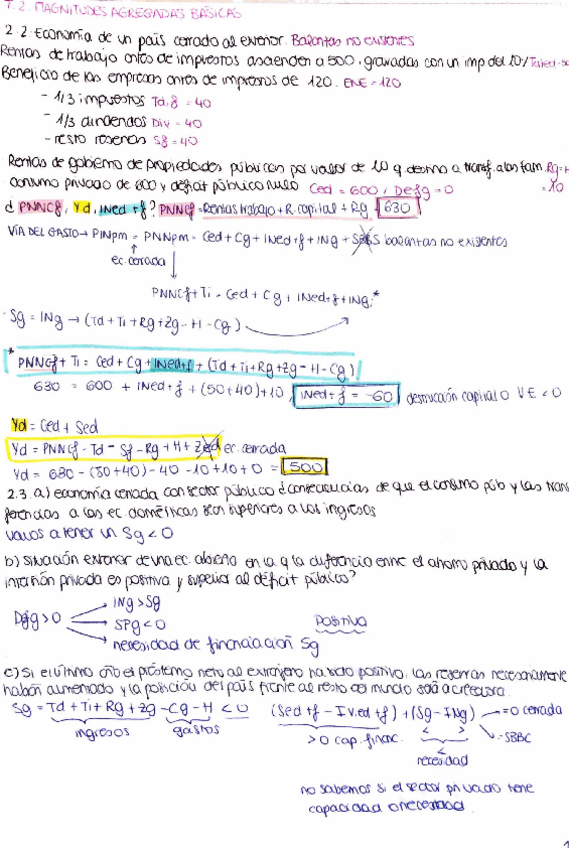 T.2. MAGNITUDES AGREGADAS BÁSICAS
2.2. Economía de un país cerrado al exterior. Balanzas no existentes
Rentas de trabajo antes de impuestos ascienden a 500, gravadas con un imp del 10%
Beneficio de las empresas antes de impuestos de 120. ENE = 120
- 1/3 impuestos Td,f = 40
- 1/3 dividendos Div = 40
- resto reservas Sf = 40
Rentas de gobierno de propiedades públicas por valor de 10 q destina a transf. a las fam. Rg = H
Consumo privado de 600 y déficit público nulo Ced = 600, Defg = 0 = 10
¿ PNNcf, Yd, INed+f? PNNcf = Rentas trabajo + R. capital + Rg = 630
VÍA DEL GASTO → PINpm = PNNpm = Ced + Cg + INed+f + INg + balanzas no existentes
ec. cerrada
PNNcf + Ti = Ced + Cg + INed+f + INg *
· Sg = INg → (Td + Ti + Rg + Zg - H - Cg)
* PNNcf + Ti = Ced + Cg + INed+f + (Td + Ti + Rg + Zg - H - Cg)
630 = 600 + INed+f + (50+40) + 10, INed+f = -60 destrucción capital O VE < 0
Yd = Ced + Sed
Yd = PNNcf - Td - Sf - Rg + H + Zed ec. cerrada
Yd = 630 - (50+40) - 40 - 10 + 10 + 0 = 500
2.3. a) economía cerrada con sector público ¿ consecuencias de que el consumo púb y las trans
ferencias a las ec. domésticas sean superiores a los ingresos
vamos a tener un Sg < 0
b) Situación exterior de una ec. abierta en la q la diferencia entre el ahorro privado y la
inversión privada es positiva y superior al déficit público?
INg > Sg
Dfg > 0 SPg < 0 POSITIVA
necesidad de financiación Sg
c) Si el último año el préstamo neto al extranjero ha sido positivo, las reservas necesariamente
habrán aumentado y la posición del país frente al resto del mundo será acreedora.
Sg = Td + Ti + Rg + Zg - Cg - H < 0 (Sed+f - IVed+f) + (Sg - INg) = 0 cerrada
ingresos gastos > 0 cap. financ. < < = SBBC
<
necesidad
no sabemos si el sector privado tiene
capacidad o necesidad
1